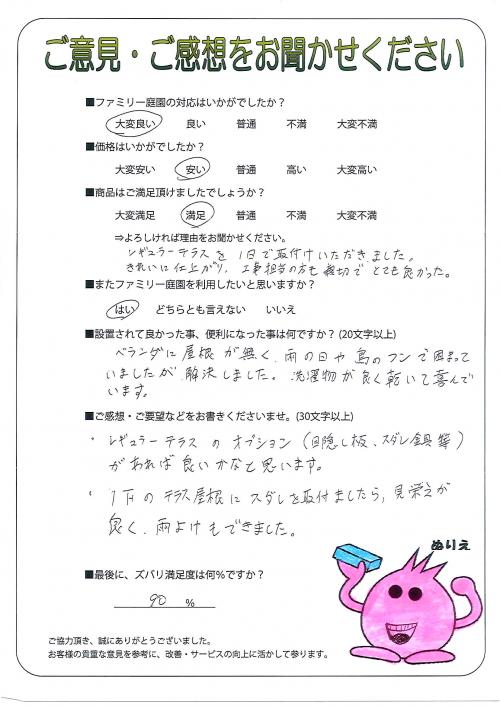 ご意見・ご感想をお聞かせください
■ファミリー庭園の対応はいかがでしたか？
大変良い　良い　普通　不満　大変不満
■価格はいかがでしたか？
大変安い　安い　普通　高い　大変高い
■商品はご満足頂けましたでしょうか？
大変満足　満足　普通　不満　大変不満
⇒よろしければ理由をお聞かせください。
レギュラーテラスを1日で取付けいただきました。
きれいに仕上がり、工事担当の方も親切でとても良かった。
■またファミリー庭園を利用したいと思いますか？
はい　どちらとも言えない　いいえ
■設置されて良かった事、便利になった事は何ですか？(20文字以上)
ベランダに屋根が無く、雨の日や鳥のフンで困って
いましたが解決しました。洗濯物が良く乾いて喜んで
います。
■ご感想・ご要望などをお書きくださいませ。(30文字以上)
・レギュラーテラスのオプション（目隠し板、スダレ金具等）
があれば良いかなと思います。
・1Fのテラス屋根にスダレを取付ましたら、見栄えが
良く、雨よけもできました。
ぬりえ
■最後に、ズバリ満足度は何%ですか？
90 %
ご協力頂き、誠にありがとうございました。
お客様の貴重な意見を参考に、改善・サービスの向上に活かして参ります。